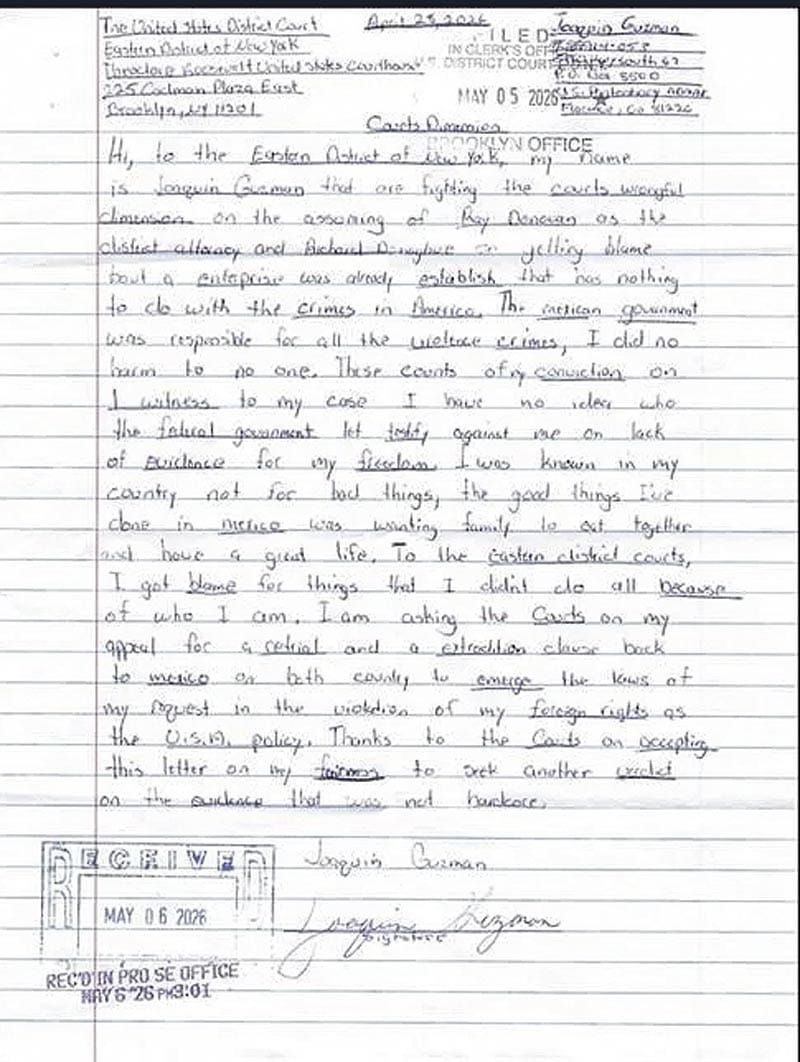 The United States District Court
Eastern District of New York
Theodore Roosevelt United States Courthouse
225 Cadman Plaza East
Brooklyn, NY 11201
April 23, 2026
FILED
IN CLERK'S OFFICE
U.S. DISTRICT COURT
MAY 05 2026
BROOKLYN OFFICE
Joaquin Guzman
P.O. Box 8500
Florence, Co 81226
Courts Dimension
Hi, to the Eastern District of New York, my name
is Joaquin Guzman that are fighting the courts wrongful
dimension on the assuming of Ray Donovan as the
district attorney and Richard Donoghue on yelling blame
bout a enterprise was already establish that has nothing
to do with the crimes in America. The mexican government
was responsible for all the violence crimes, I did no
harm to no one. These counts of my conviction on
I witness to my case I have no idea who
the federal government let testify against me on lack
of evidence for my freedom I was known in my
country not for bad things, the good things I've
done in mexico was wanting family to eat together
and have a great life. To the eastern district courts,
I got blame for things that I didn't do all because
of who I am. I am asking the Courts on my
appeal for a retrial and a extradition clause back
to mexico on both country to emerge the laws of
my request in the violation of my foreign rights as
the U.S.A. policy. Thanks to the Courts on accepting
this letter on my fairness to seek another verdict
on the evidence that was not hardcore.
Joaquin Guzman
Joaquin Guzman
Signature
RECEIVED
MAY 06 2026
REC'D IN PRO SE OFFICE
MAY 6 '26 PM3:01